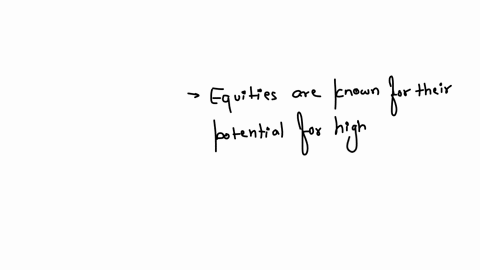 → Equities are known for their
potential for high